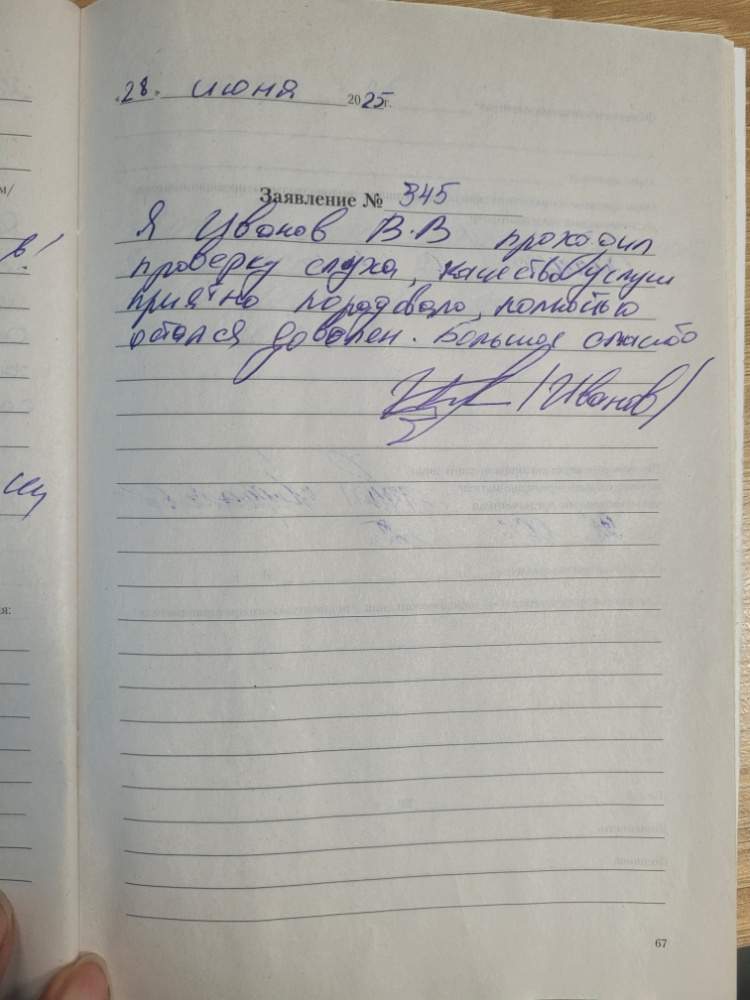 «28» июня 2025г.
Заявление № 345
Я Иванов В.В проходил
проверку слуха, качество услуги
приятно порадовало, полностью
остался доволен. Большое спасибо
/Иванов/
67